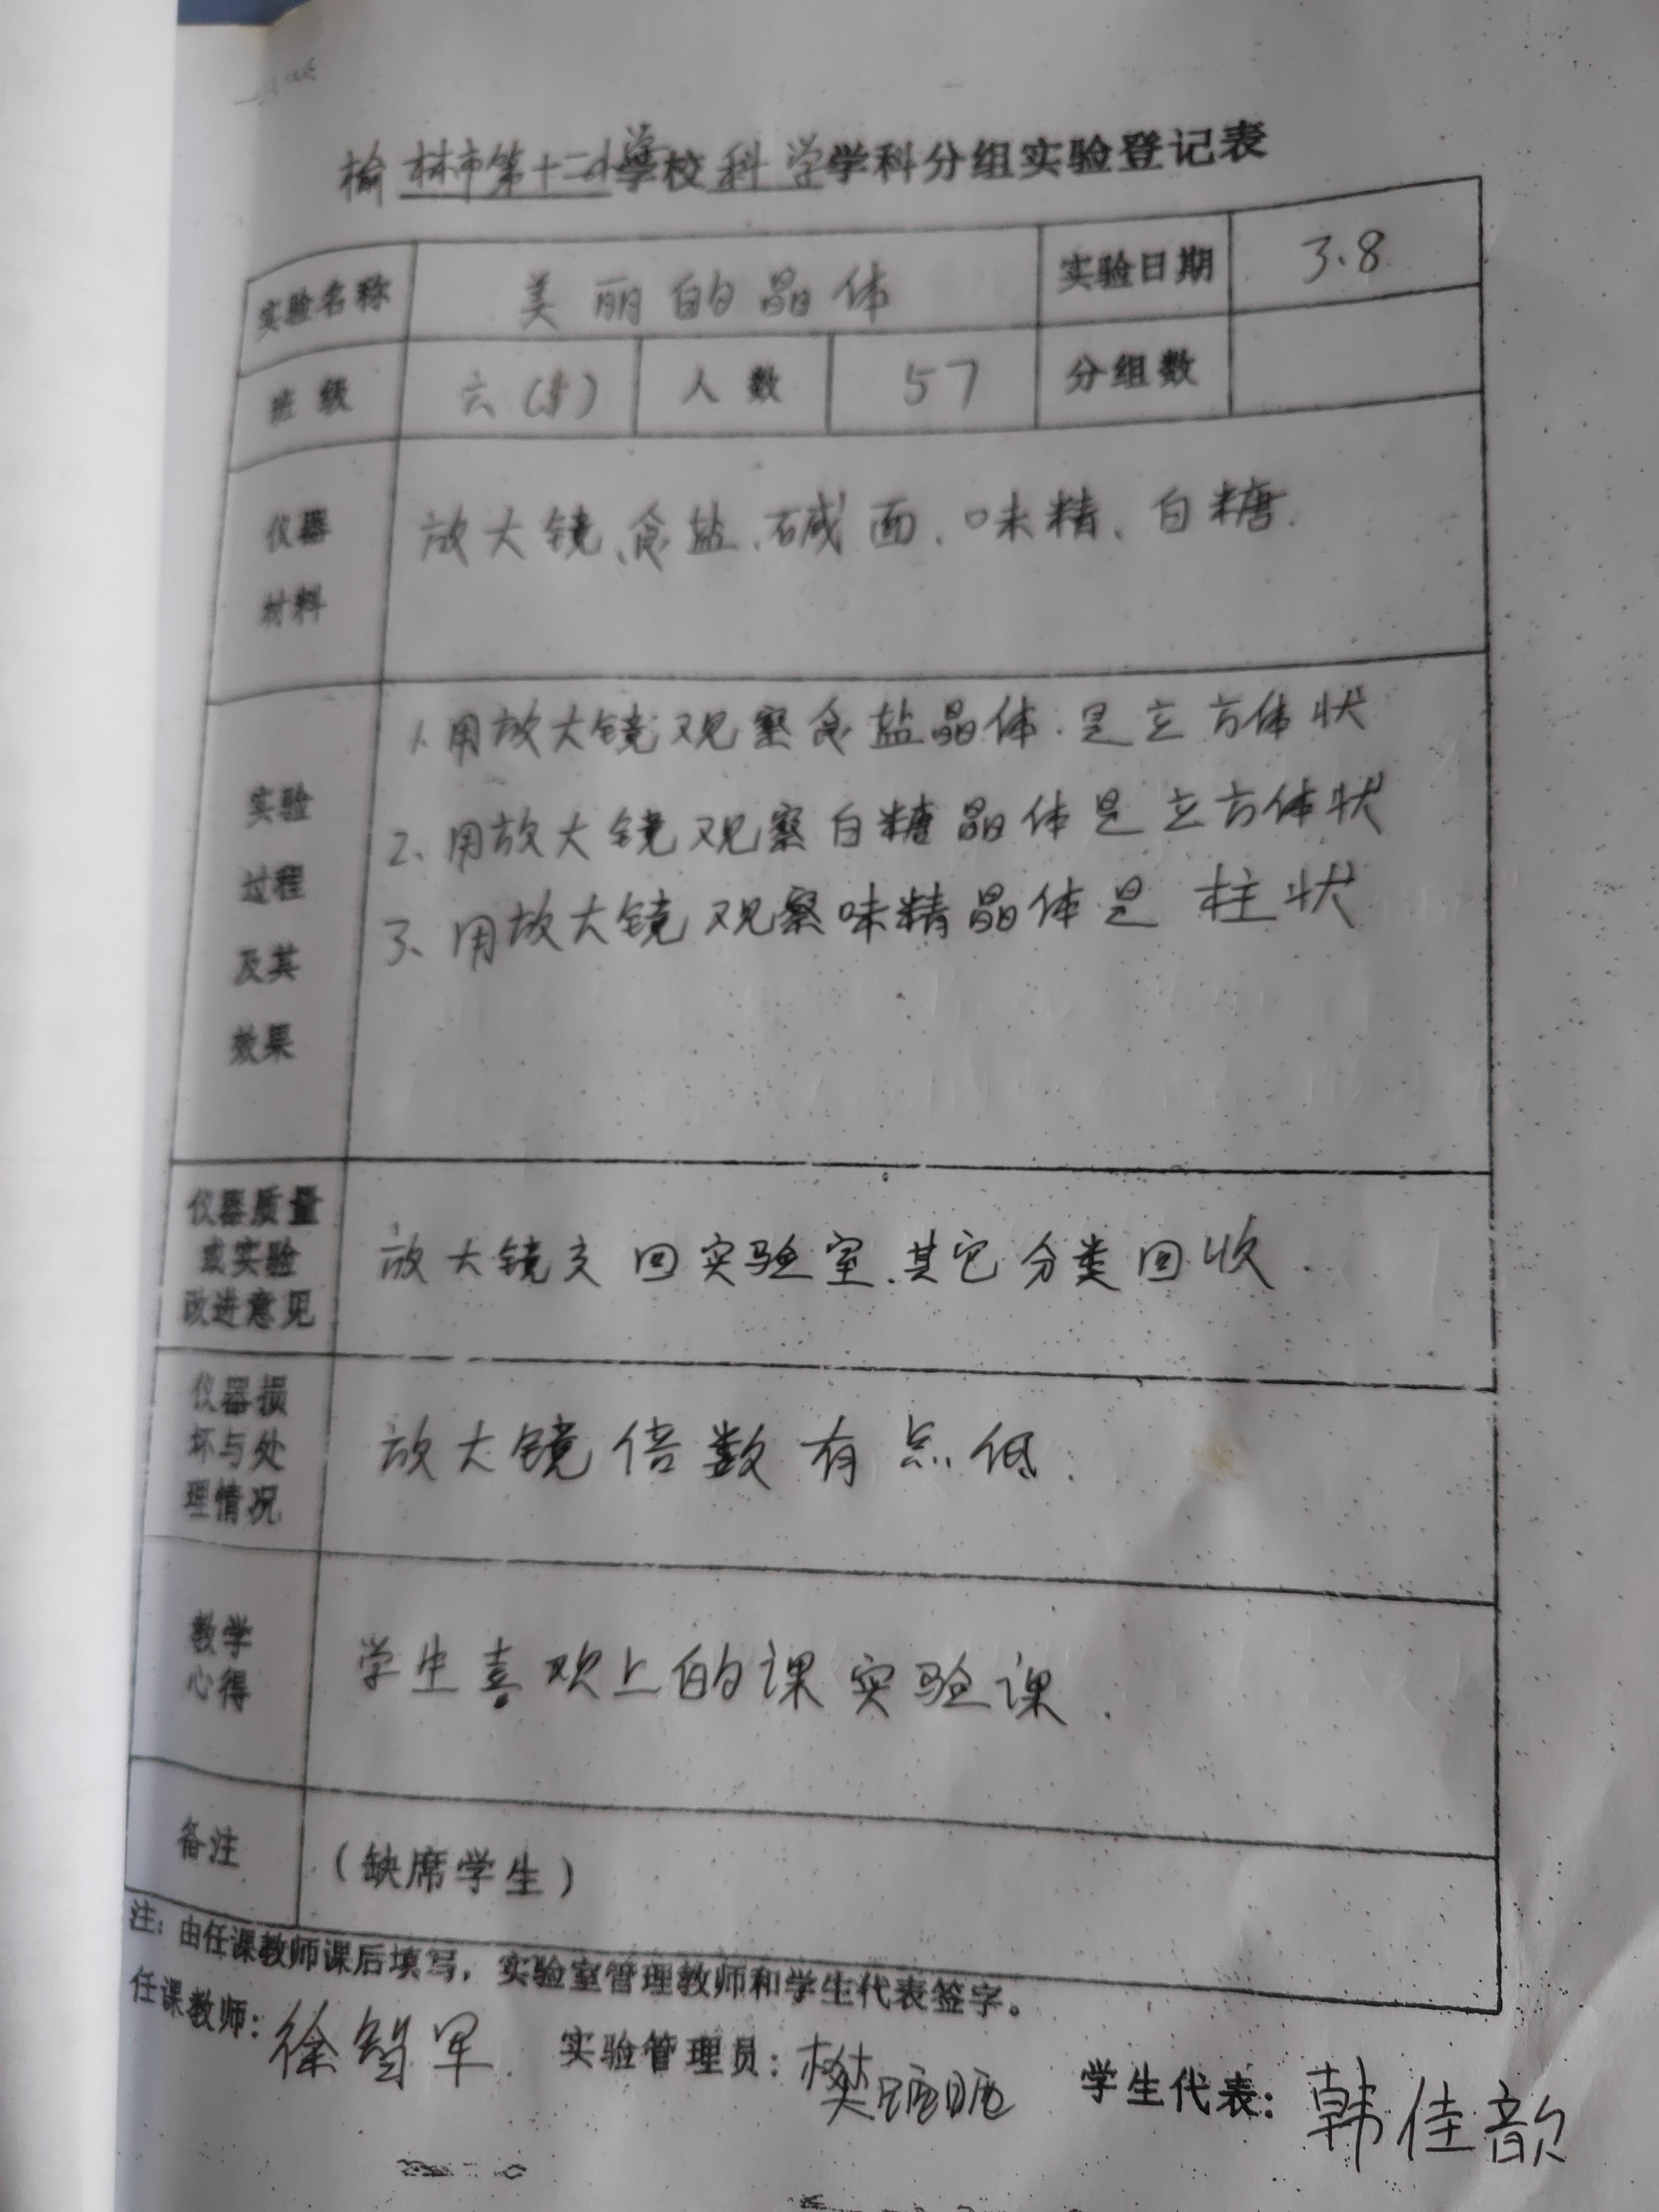 榆林市第十二小学学校科学学科分组实验登记表
实验名称 美丽的晶体 实验日期 3.8
班级 六( ) 人数 57 分组数
仪器
材料
放大镜、食盐、碱面、味精、白糖.
实验
过程
及其
效果
1.用放大镜观察食盐晶体.是立方体状
2、用放大镜观察白糖晶体是立方体状
3、用放大镜观察味精晶体是 柱状
仪器质量
或实验
改进意见
放大镜交回实验室、其它分类回收.
仪器损
坏与处
理情况
放大镜倍数有点低.
教学
心得
学生喜欢上的课实验课.
备注
(缺席学生)
注：由任课教师课后填写，实验室管理教师和学生代表签字。
任课教师：徐智军 实验管理员：樊 学生代表：韩佳歆